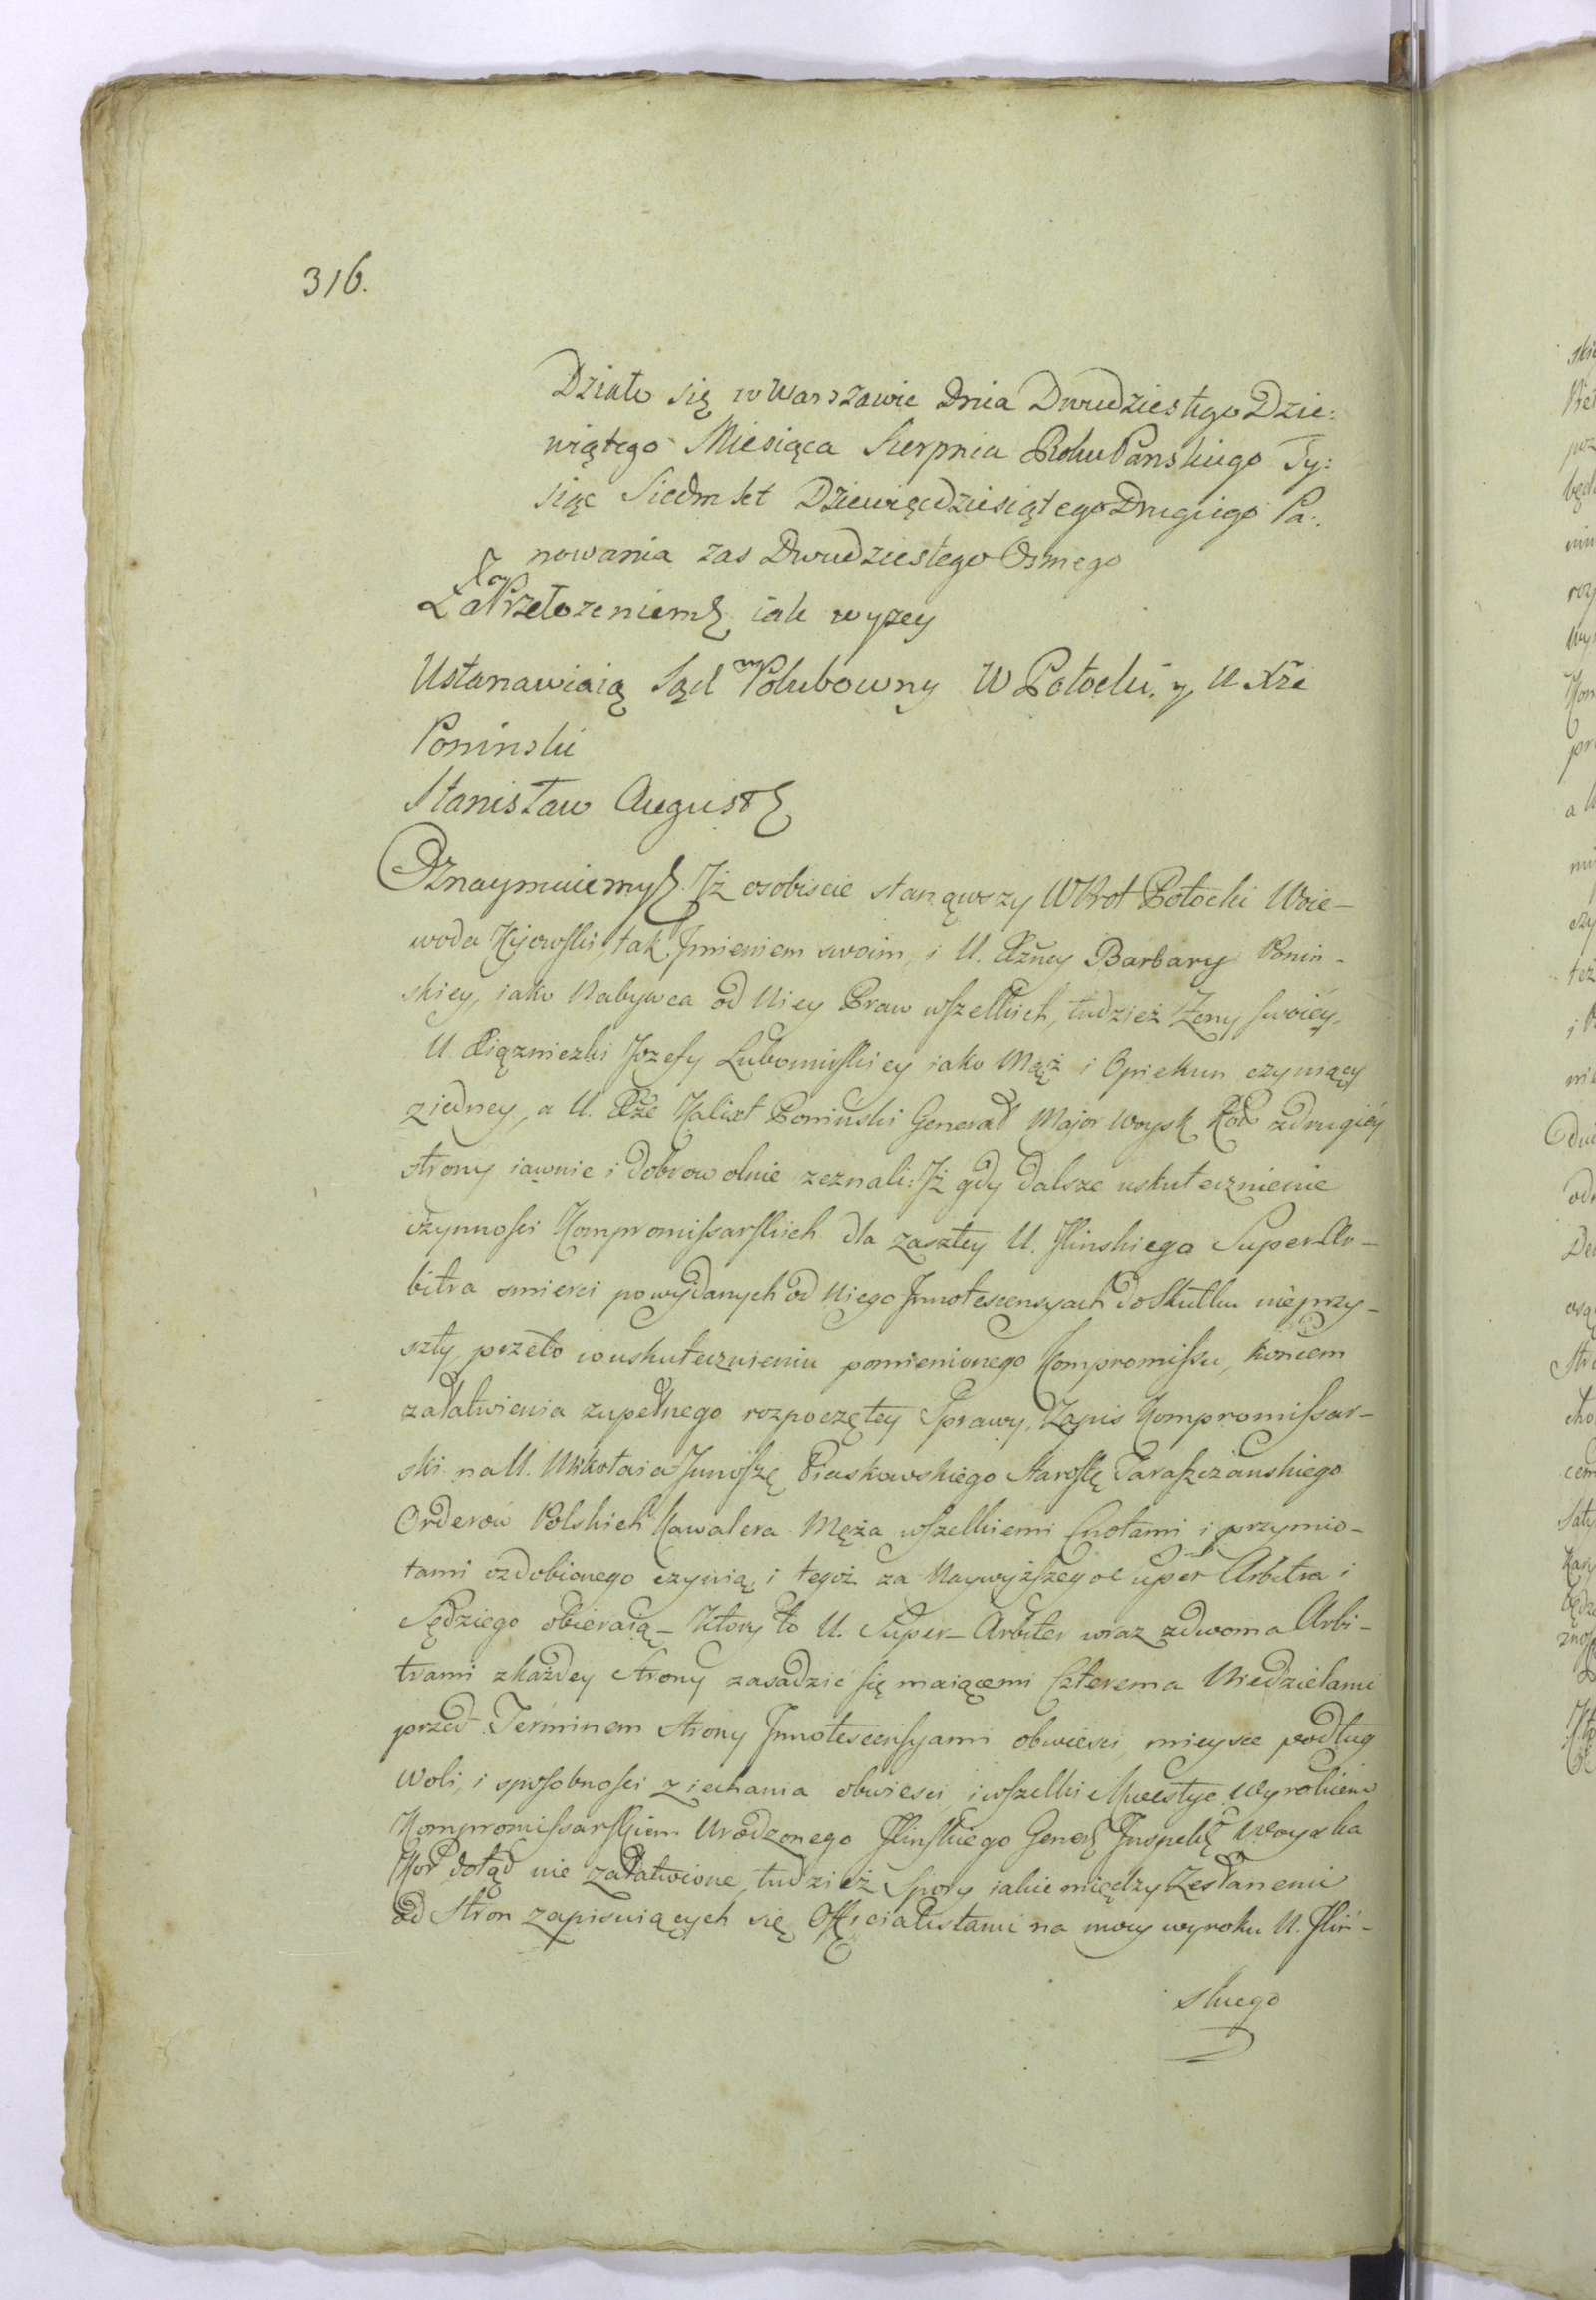 316.
Działo się w Warszawie Dnia Dwudziestego Dzie:
wiątego Miesiąca Sierpnia Roku Panskiego Ty:
siąc Siedmset Dziewięcdziesiątego Drugiego Pa:
nowania zas Dwudziestego Osmego
Za Przełozeniem iak wyzey
Ustanawiaią Sąd Polubowny W Potocki, y U Xże
Poninski
Stanisław August
Oznaymuiemy Iż osobiscie stanąwszy W Prot Potocki Woie-
woda Kijowski, tak Imieniem swoim, i U. Xżney Barbary Ponin-
skiey, iako Nabywca od Niey Praw wszelkich, tudzież Zony swoiey,
U. Xiązniczki Jozefy Lubomirskiey iako Mąż i Opiekun czyniący
ziedney, a U. Xże Kalixt Poniński Generał Major Woysk Kor zdrugiéy
strony iawnie i dobrowolnie zeznali: Iż gdy dalsze uskutecznienie
czynności Kompromissarskich dla zaszłey U. Ilinskiego Super Ar-
bitra smierci powydanych od Niego Innotescensyach do skutku nieprzy-
szły, przeto w uskutecznieniu pomienionego Kompromissu, końcem
załatwienia zupełnego rozpoczętey Sprawy, Zapis Kompromissar-
ski na U. Mikołaia Junoszę Piaskowskiego Starostę Taraszczanskiego
Orderów Polskich Kawalera Męża wszelkiemi Cnotami i przymio-
tami ozdobionego czynią, i tegoż za Naywyższego Super Arbitra i
Sędziego obieraią - Ktory to U. Super-Arbiter wraz zdwoma Arbi-
trami zkażdey Strony zasadzić się maiącemi Czterema Niedzielami
przed Terminem Strony Innotescensyami obwiesci, mieysce podług
woli, i sposobności ziechania obwiesci, i wszelkie Kwestye wyrokiem
Kompromissarskiem Urodzonego Ilinskiego Gener Inspekt Woyska
Kor dotąd nie załatwione, tudzież Spory iakie między Zesłanemi
od Stron zapisuiących się Officialistami na mocy wyroku U. Iliń-
skiego